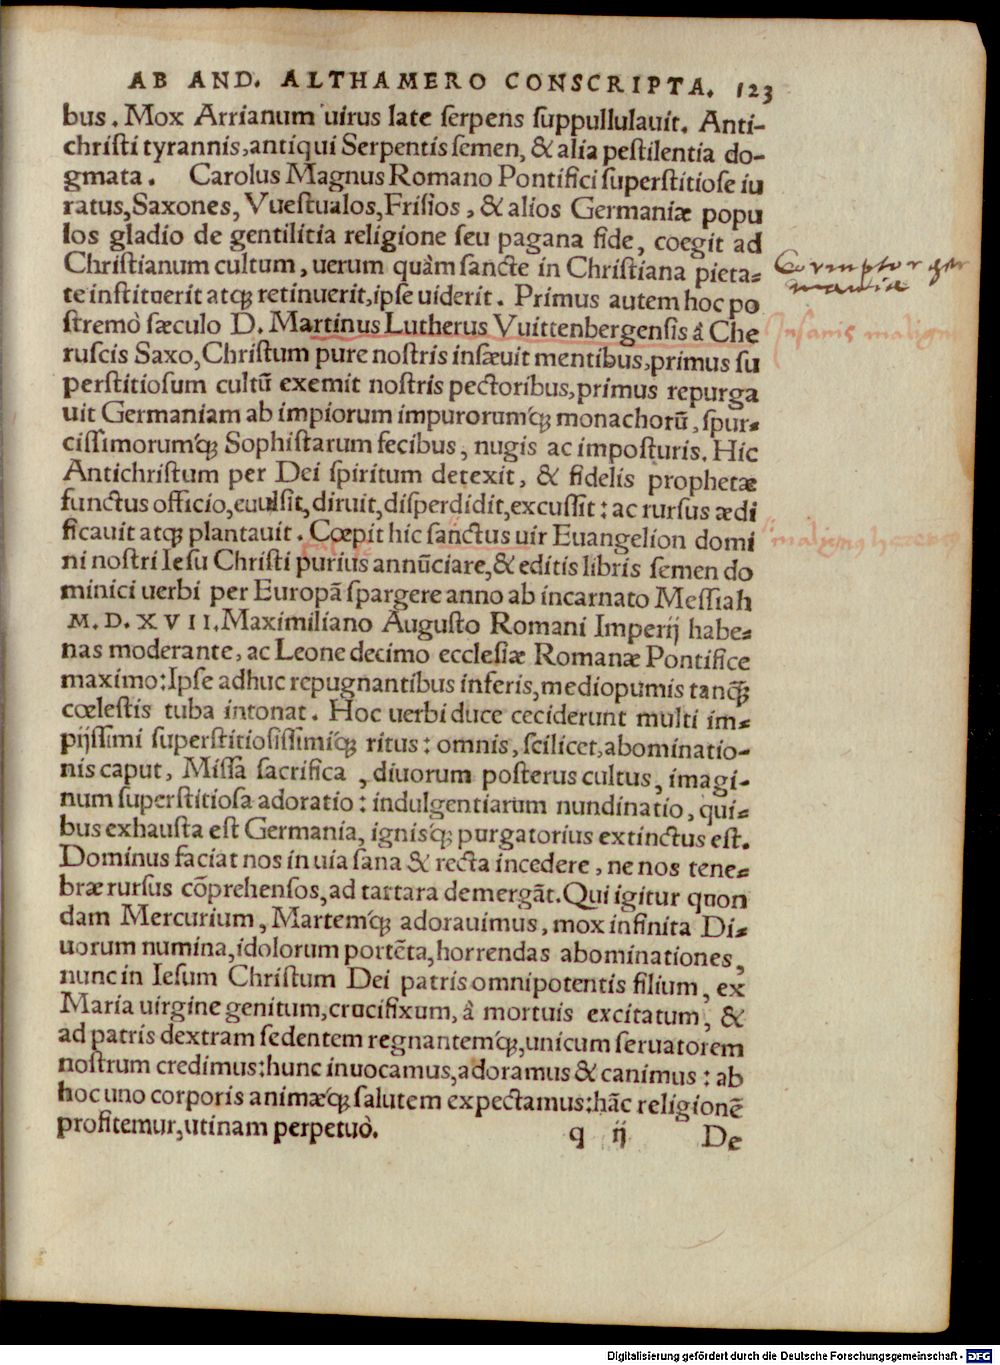 AB AND. ALTHAMERO CONSCRIPTA. 123
bus. Mox Arrianum uirus late serpens suppullulauit. Anti-
christi tyrannis, antiqui Serpentis semen, & alia pestilentia do-
gmata. Carolus Magnus Romano Pontifici superstitiose iu
ratus, Saxones, Vuestualos, Frisios, & alios Germaniæ popu
los gladio de gentilitia religione seu pagana fide, coegit ad
Christianum cultum, uerum quàm sancte in Christiana pieta-
te instituerit atq; retinuerit, ipse uiderit. Primus autem hoc po
stremò sæculo D. Martinus Lutherus Vuittenbergensis â Che
ruscis Saxo, Christum pure nostris insæuit mentibus, primus su
perstitiosum cultũ exemit nostris pectoribus, primus repurga
uit Germaniam ab impiorum impurorumq́; monachorũ, spur-
cissimorumq́; Sophistarum fecibus, nugis ac imposturis. Hic
Antichristum per Dei spiritum detexit, & fidelis prophetæ
functus officio, euulsit, diruit, disperdidit, excussit: ac rursus ædi
ficauit atq; plantauit. Cœpit hic sanctus uir Euangelion domi
ni nostri Iesu Christi purius annũciare, & editis libris semen do
minici uerbi per Europã spargere anno ab incarnato Messiah
M. D. XVII. Maximiliano Augusto Romani Imperij habe-
nas moderante, ac Leone decimo ecclesiæ Romanæ Pontifice
maximo: Ipse adhuc repugnantibus inferis, mediopumis tanq̃;
cœlestis tuba intonat. Hoc uerbi duce ceciderunt multi im-
pijssimi superstitiosissimiq́; ritus: omnis, scilicet, abominatio-
nis caput, Missa sacrifica, diuorum posterus cultus, imagi-
num superstitiosa adoratio: indulgentiarum nundinatio, qui-
bus exhausta est Germania, ignisq́; purgatorius extinctus est.
Dominus faciat nos in uia sana & recta incedere, ne nos tene-
bræ rursus cõprehensos, ad tartara demergãt. Qui igitur quon
dam Mercurium, Martemq́; adorauimus, mox infinita Di-
uorum numina, idolorum portẽta, horrendas abominationes,
nunc in Iesum Christum Dei patris omnipotentis filium, ex
Maria uirgine genitum, crucifixum, à mortuis excitatum, &
ad patris dextram sedentem regnantemq́;, unicum seruatorem
nostrum credimus: hunc inuocamus, adoramus & canimus: ab
hoc uno corporis animæq́; salutem expectamus: hãc religionẽ
profitemur, utinam perpetuò.
q ij De
Corruptor ger
maniæ
Insanis
Digitalisierung gefördert durch die Deutsche Forschungsgemeinschaft - DFG